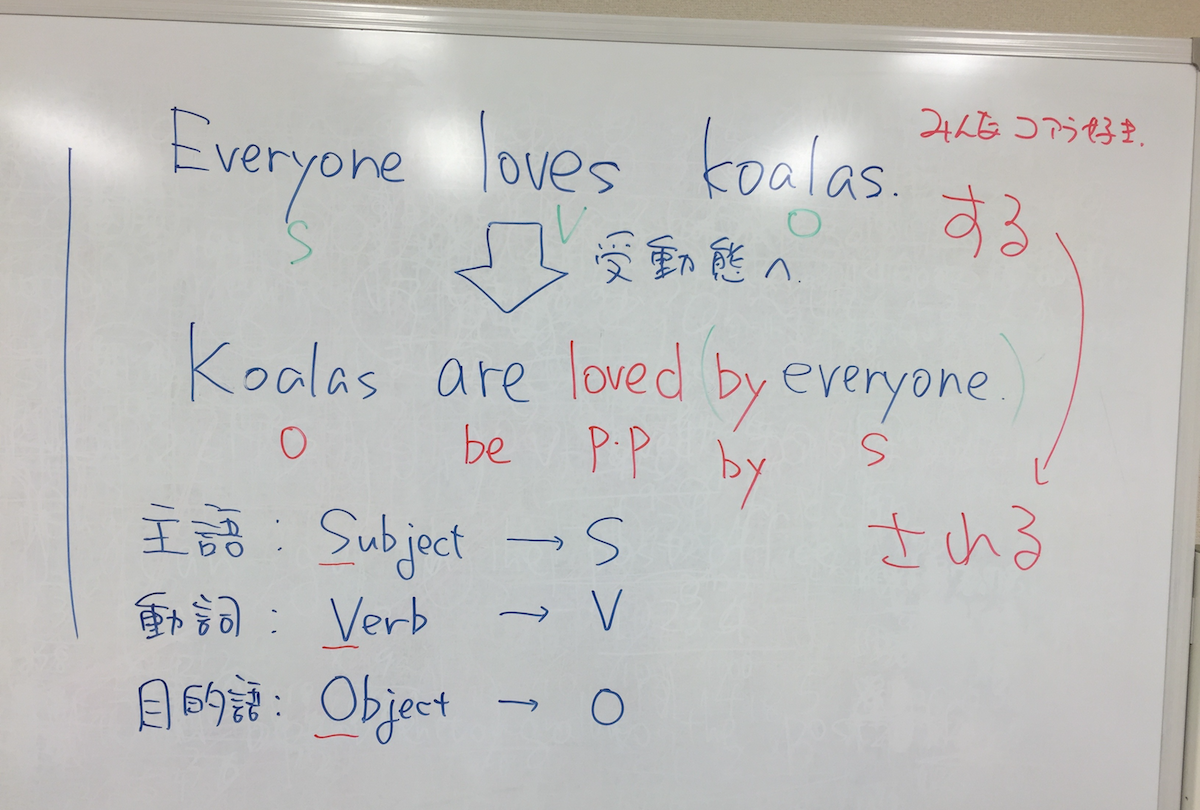 Everyone loves koalas.
みんなコアラ好き.
S V O
する
受動態へ.
Koalas are loved (by everyone.)
O be P.P by S
される
主語: Subject → S
動詞: Verb → V
目的語: Object → O